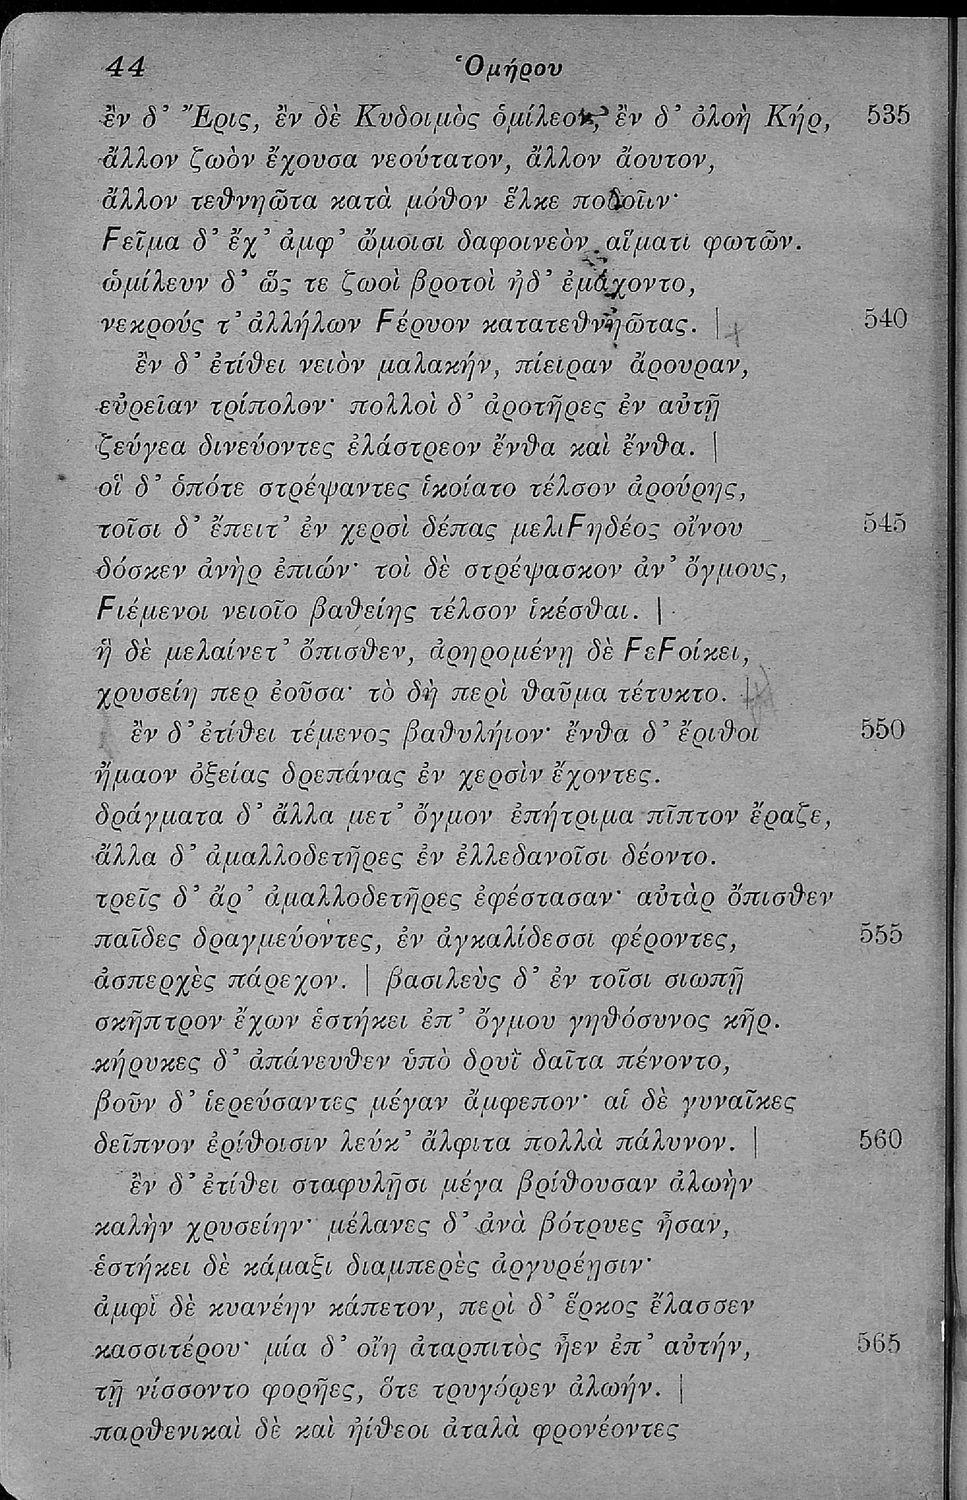 44 Ὁμήρου
ἐ̓ν δ’ Ἔρις, ἐ̓ν δὲ Κυδοιμὸς ὁμίλεον, ἐ̓ν δ’ ὀλοὴ Κήρ, 535
ἄλλον ζωὸν ἔχουσα νεούτατον, ἄλλον ἄουτον,
ἄλλον τεθνηῶτα κατὰ μόθον ἕλκε ποδοῖιν·
Ϝεῖμα δ’ ἔχ’ ἀμφ’ ὤμοισι δαφοινεὸν αἵματι φωτῶν.
ὡμίλευν δ’ ὥς τε ζωοὶ βροτοὶ ἠδ’ ἐμάχοντο,
νεκρούς τ’ ἀλλήλων Ϝέρυον κατατεθνηῶτας. | 540
ἐ̓ν δ’ ἐτίθει νειὸν μαλακήν, πίειραν ἄρουραν,
εὐρεῖαν τρίπολον· πολλοὶ δ’ ἀροτῆρες ἐν αὐτῇ
ζεύγεα δινεύοντες ἐλάστρεον ἔνθα καὶ ἔνθα. |
οἳ δ’ ὁπότε στρέψαντες ἱκοίατο τέλσον ἀρούρης,
τοῖσι δ’ ἔπειτ’ ἐν χερσὶ δέπας μελιϜηδέος οἴνου 545
δόσκεν ἀνὴρ ἐπιών· τοὶ δὲ στρέψασκον ἀν’ ὄγμους,
Ϝιέμενοι νειοῖο βαθείης τέλσον ἱκέσθαι. |
ἣ δὲ μελαίνετ’ ὄπισθεν, ἀρηρομένῃ δὲ ϜεϜοίκει,
χρυσείη περ ἐοῦσα· τὸ δὴ περὶ θαῦμα τέτυκτο. |
ἐ̓ν δ’ ἐτίθει τέμενος βαθυλήιον· ἔνθα δ’ ἔριθοι 550
ἤμαον ὀξείας δρεπάνας ἐν χερσὶν ἔχοντες.
δράγματα δ’ ἄλλα μετ’ ὄγμον ἐπήτριμα πῖπτον ἔραζε,
ἄλλα δ’ ἀμαλλοδετῆρες ἐν ἐλλεδανοῖσι δέοντο.
τρεῖς δ’ ἄρ’ ἀμαλλοδετῆρες ἐφέστασαν· αὐτὰρ ὄπισθεν
παῖδες δραγμεύοντες, ἐν ἀγκαλίδεσσι φέροντες, 555
ἀσπερχὲς πάρεχον. | βασιλεὺς δ’ ἐν τοῖσι σιωπῇ
σκῆπτρον ἔχων ἑστήκει ἐπ’ ὄγμου γηθόσυνος κῆρ.
κήρυκες δ’ ἀπάνευθεν ὑπὸ δρυῒ δαῖτα πένοντο,
βοῦν δ’ ἱερεύσαντες μέγαν ἄμφεπον· αἱ δὲ γυναῖκες
δεῖπνον ἐρίθοισιν λεύκ’ ἄλφιτα πολλὰ πάλυνον. | 560
ἐ̓ν δ’ ἐτίθει σταφυλῇσι μέγα βρίθουσαν ἀλωὴν
καλὴν χρυσείην· μέλανες δ’ ἀνὰ βότρυες ἦσαν,
ἑστήκει δὲ κάμαξι διαμπερὲς ἀργυρέῃσιν·
ἀμφὶ δὲ κυανέην κάπετον, περὶ δ’ ἕρκος ἔλασσεν
κασσιτέρου· μία δ’ οἴη ἀταρπιτὸς ἦεν ἐπ’ αὐτήν, 565
τῇ νίσσοντο φορῆες, ὅτε τρυγόῳεν ἀλωήν. |
παρθενικαὶ δὲ καὶ ἠίθεοι ἀταλὰ φρονέοντες